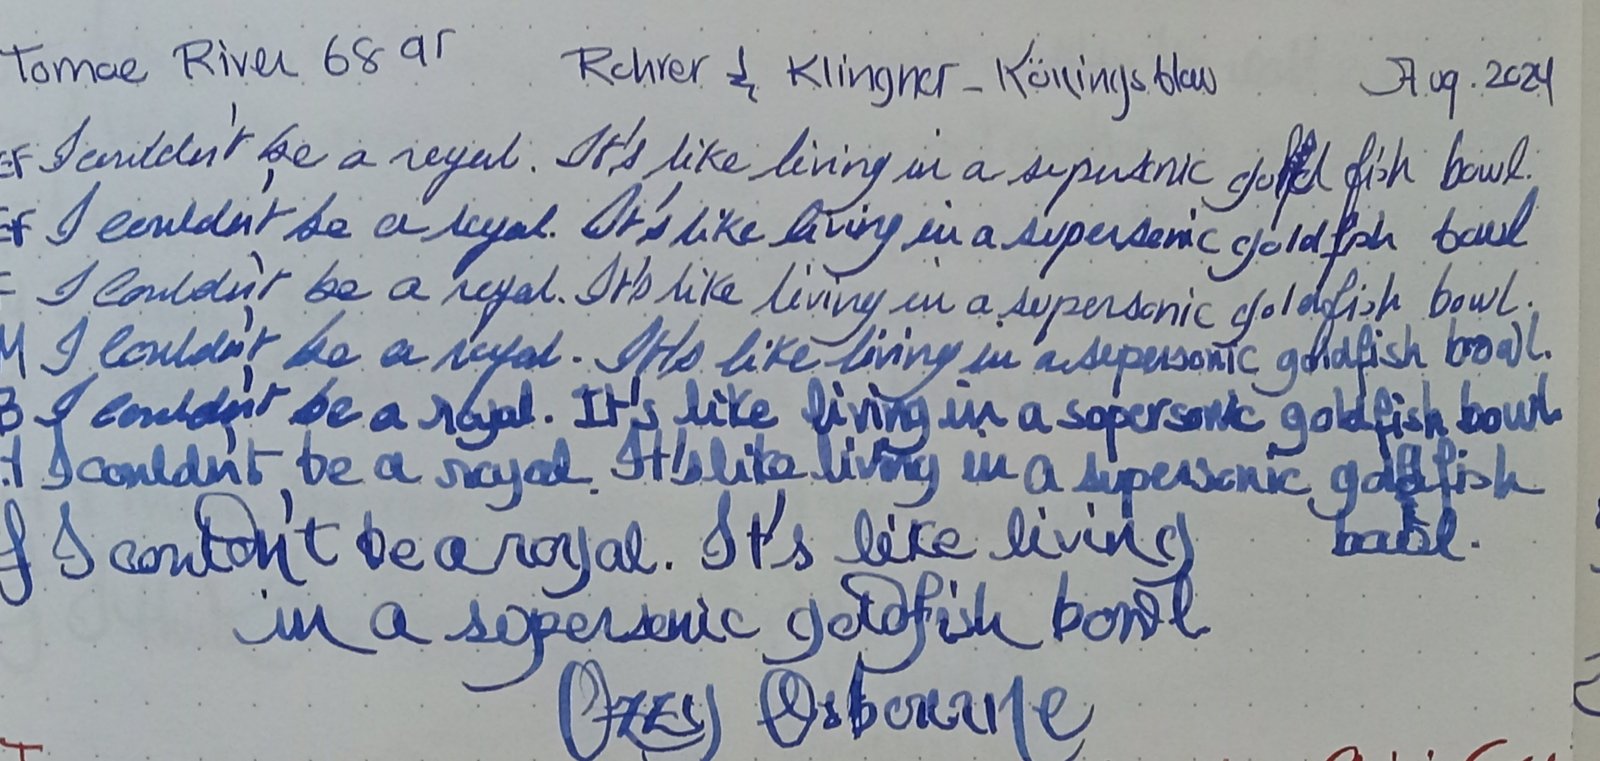 Tomoe River 68 gr Rohrer & Klingner - Königsblau Aug. 2024
EF I couldn't be a royal. It's like living in a supersonic gold fish bowl.
EF I couldn't be a royal. It's like living in a supersonic goldfish bowl
F I couldn't be a royal. It's like living in a supersonic goldfish bowl.
M I couldn't be a royal. It's like living in a supersonic goldfish bowl.
B I couldn't be a royal. It's like living in a sopersonic goldfish bowl
I couldn't be a royal. It's like living in a supersonic goldfish
bowl.
I couldn't be a royal. It's like living
in a sopersonic goldfish bowl
Ozzy Osbourne